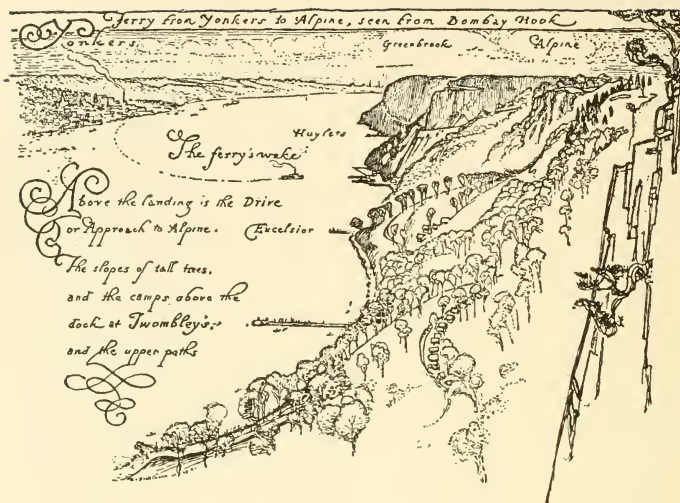 Ferry from Yonkers to Alpine, seen from Bombay Hook
Yonkers
Greenbrook
Alpine
Huylers
The ferry's wake
Above the landing is the Drive
or Approach to Alpine.
Excelsior
The slopes of tall trees,
and the camps above the
dock at Twombley's:
and the upper paths